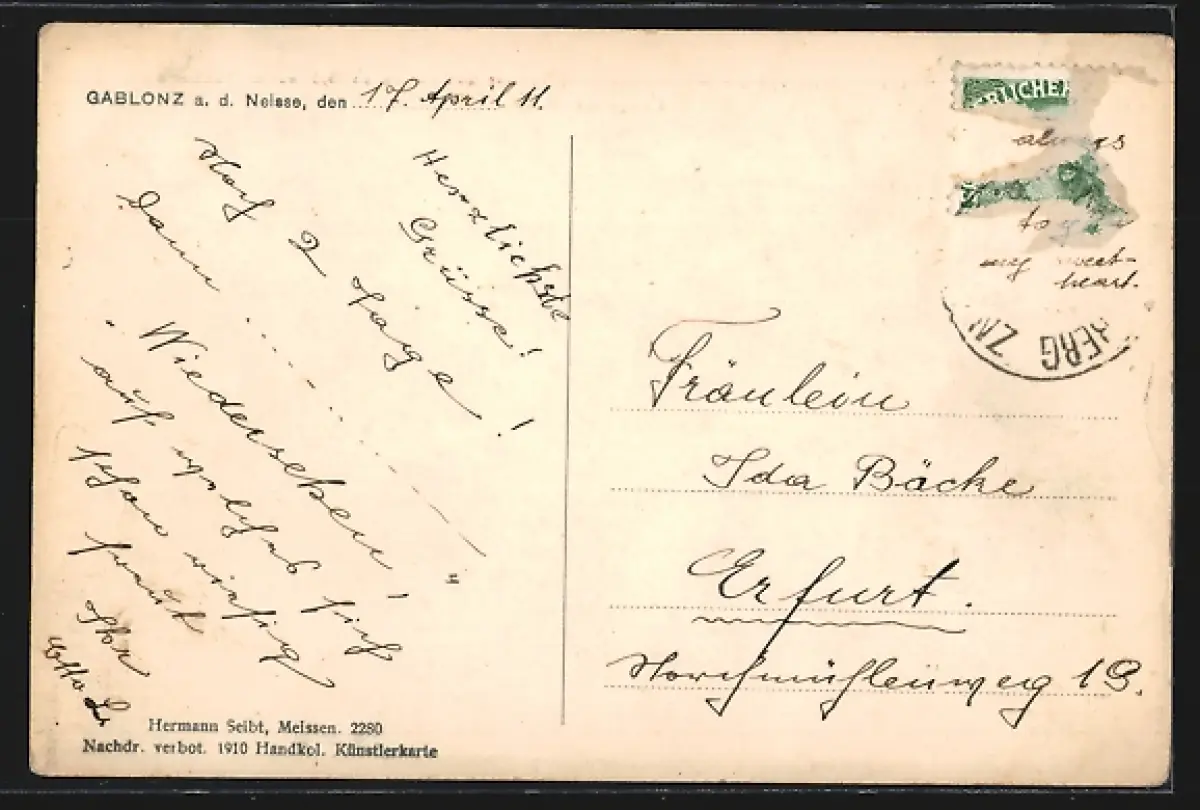 GABLONZ a. d. Neisse, den 17. April 11.
Herzlichste
Grüsse!
Noch 2 Tage!
Dann ............ "
"Wiedersehen!
auf welches sich
schon riesig
freut
Otto
always
to you
my sweet-
heart.
Fräulein
Ida Bäcke
Erfurt.
Horchmühlenweg 19.
Hermann Seibt, Meissen. 2280
Nachdr. verbot. 1910 Handkol. Künstlerkarte